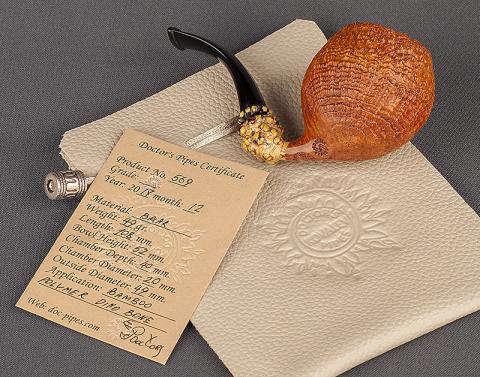 Doctor's Pipes Certificate
Product No. 569
Grade:
Year: 2018 month: 12
Material: BRIAR
Weight: 49 gr.
Length: mm.
Bowl Height: 52 mm.
Chamber Depth: 40 mm.
Chamber Diameter: 20 mm.
Outside Diameter: 49 mm.
Application: BAMBOO
POLYMER DINO BONE
Web: doc-pipes.com